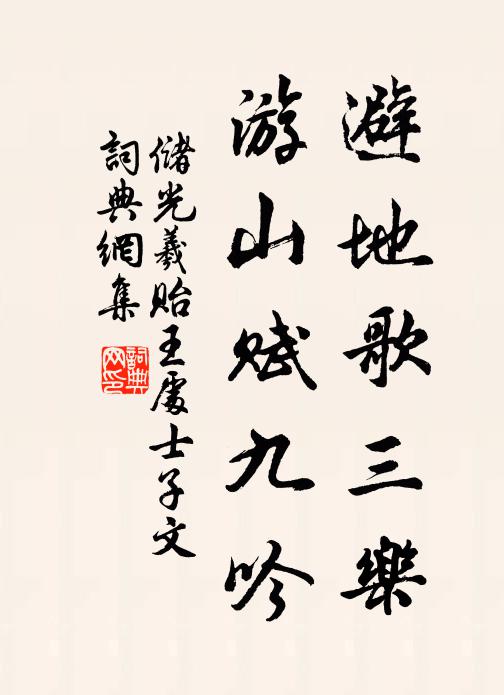 避地歌三樂
游山赋九吟
儲光羲貽王處士子文
詞典網集
詞典网印